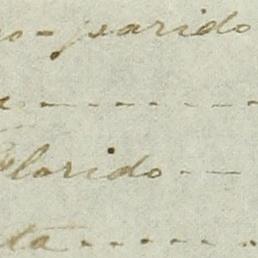 o-parido
Florido - -
ta - - - - -